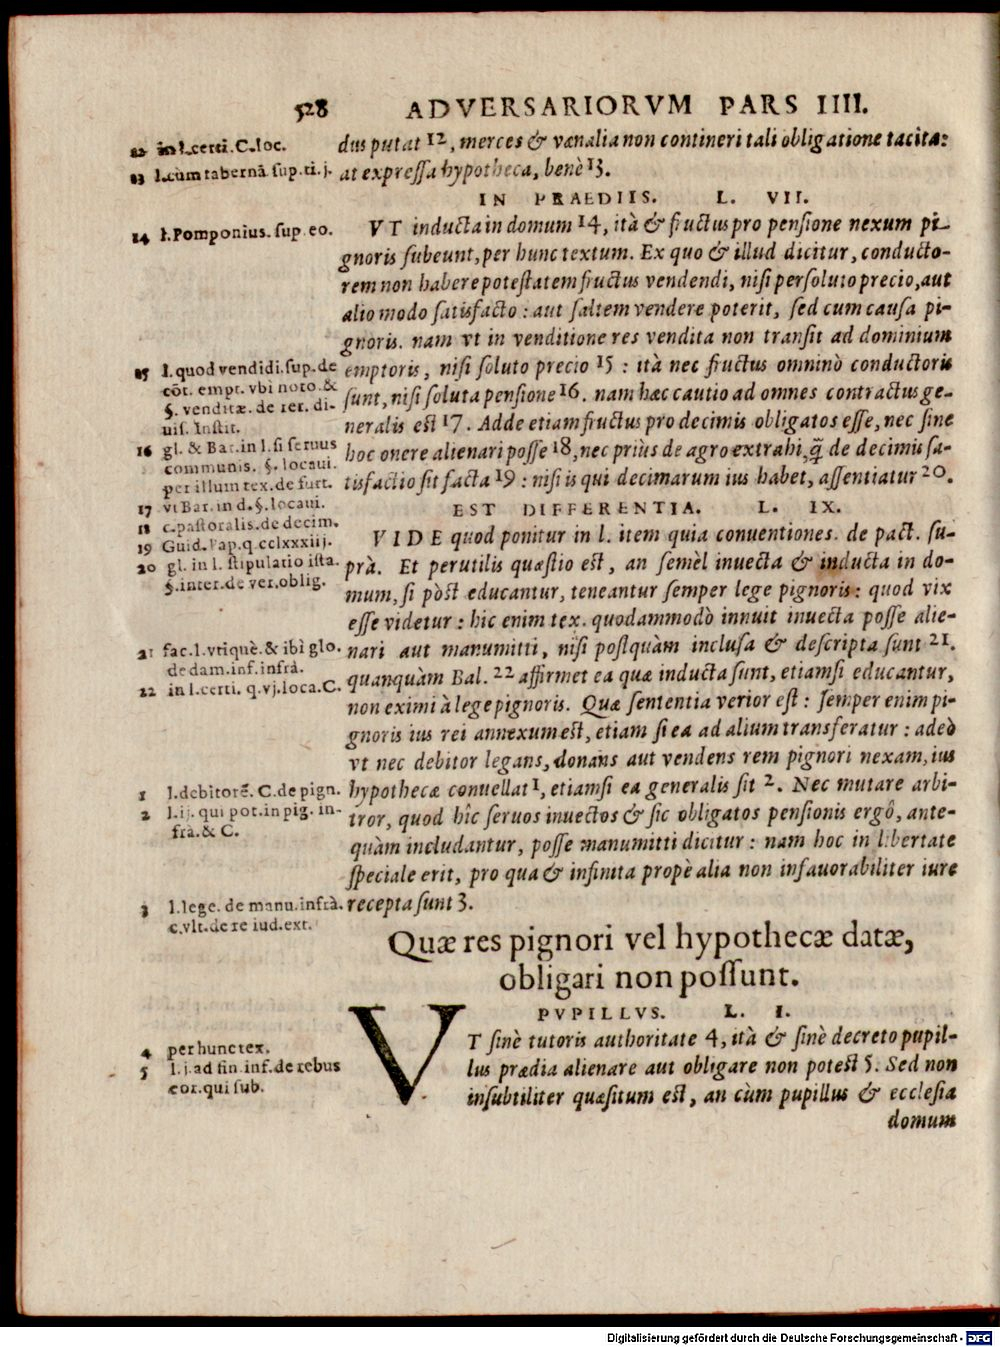 528 ADVERSARIORVM PARS IIII.
dus putat 12, merces & vænalia non contineri tali obligatione tacita:
at expressa hypotheca, benè 13.
IN PRAEDIIS. L. VII.
VT inducta in domum 14, ità & fructus pro pensione nexum pi-
gnoris subeunt, per hunc textum. Ex quo & illud dicitur, conducto-
rem non habere potestatem fructus vendendi, nisi persoluto precio, aut
alio modo satisfacto: aut saltem vendere poterit, sed cum causa pi-
gnoris. nam vt in venditione res vendita non transit ad dominium
emptoris, nisi soluto precio 15: ità nec fructus omninò conductoris
sunt, nisi soluta pensione 16. nam hæc cautio ad omnes contractus ge-
neralis est 17. Adde etiam fructus pro decimis obligatos esse, nec sine
hoc onere alienari posse 18, nec priùs de agro extrahi, q̃ de decimis sa-
tisfactio sit facta 19: nisi is qui decimarum ius habet, assentiatur 20.
EST DIFFERENTIA. L. IX.
VIDE quod ponitur in l. item quia conuentiones. de pact. su-
prà. Et perutilis quæstio est, an semèl inuecta & inducta in do-
mum, si pòst educantur, teneantur semper lege pignoris: quod vix
esse videtur: hic enim tex. quodammodò innuit inuecta posse alie-
nari aut manumitti, nisi postquàm inclusa & descripta sunt 21.
quanquàm Bal. 22 affirmet ea quæ inducta sunt, etiamsi educantur,
non eximi à lege pignoris. Quæ sententia verior est: semper enim pi-
gnoris ius rei annexum est, etiam si ea ad alium transferatur: adeò
vt nec debitor legans, donans aut vendens rem pignori nexam, ius
hypothecæ conuellat 1, etiamsi ea generalis sit 2. Nec mutare arbi-
tror, quod hîc seruos inuectos & sic obligatos pensionis ergô, ante-
quàm includantur, posse manumitti dicitur: nam hoc in libertate
speciale erit, pro qua & infinita propè alia non infauorabiliter iure
recepta sunt 3.
Quæ res pignori vel hypothecæ datæ,
obligari non possunt.
PVPILLVS. L. I.
VT sinè tutoris authoritate 4, ità & sinè decreto pupil-
lus prædia alienare aut obligare non potest 5. Sed non
insubtiliter quæsitum est, an cùm pupillus & ecclesia
domum
12 in l.certi. C. loc.
13 l.cùm tabernã sup. ti. j.
14 l. Pomponius. sup. eo.
15 l. quod vendidi. sup. de
cõt. empt. vbi noto. &
§. venditæ. de rer. di-
uis. Instit.
16 gl. & Bar. in l. si seruus
communis. §. locaui.
per illum tex. de furt.
17 vt Bar. in d. §. locaui.
18 c. pastoralis. de decim.
19 Guid. Pap. q. cclxxxiij.
20 gl. in l. stipulatio ista.
§. inter. de ver. oblig.
21 fac. l. vtiquè. & ibi glo.
de dam. inf. infrà.
22 in l. certi. q. vj. loca. C.
1 l. debitorẽ. C. de pign.
2 l. ij. qui pot. in pig. in-
frà. & C.
3 l. lege. de manu. infrà.
c. vlt. de re iud. ext.
4 per hunc tex.
5 l. j. ad fin. inf. de rebus
eor. qui sub.
Digitalisierung gefördert durch die Deutsche Forschungsgemeinschaft - DFG